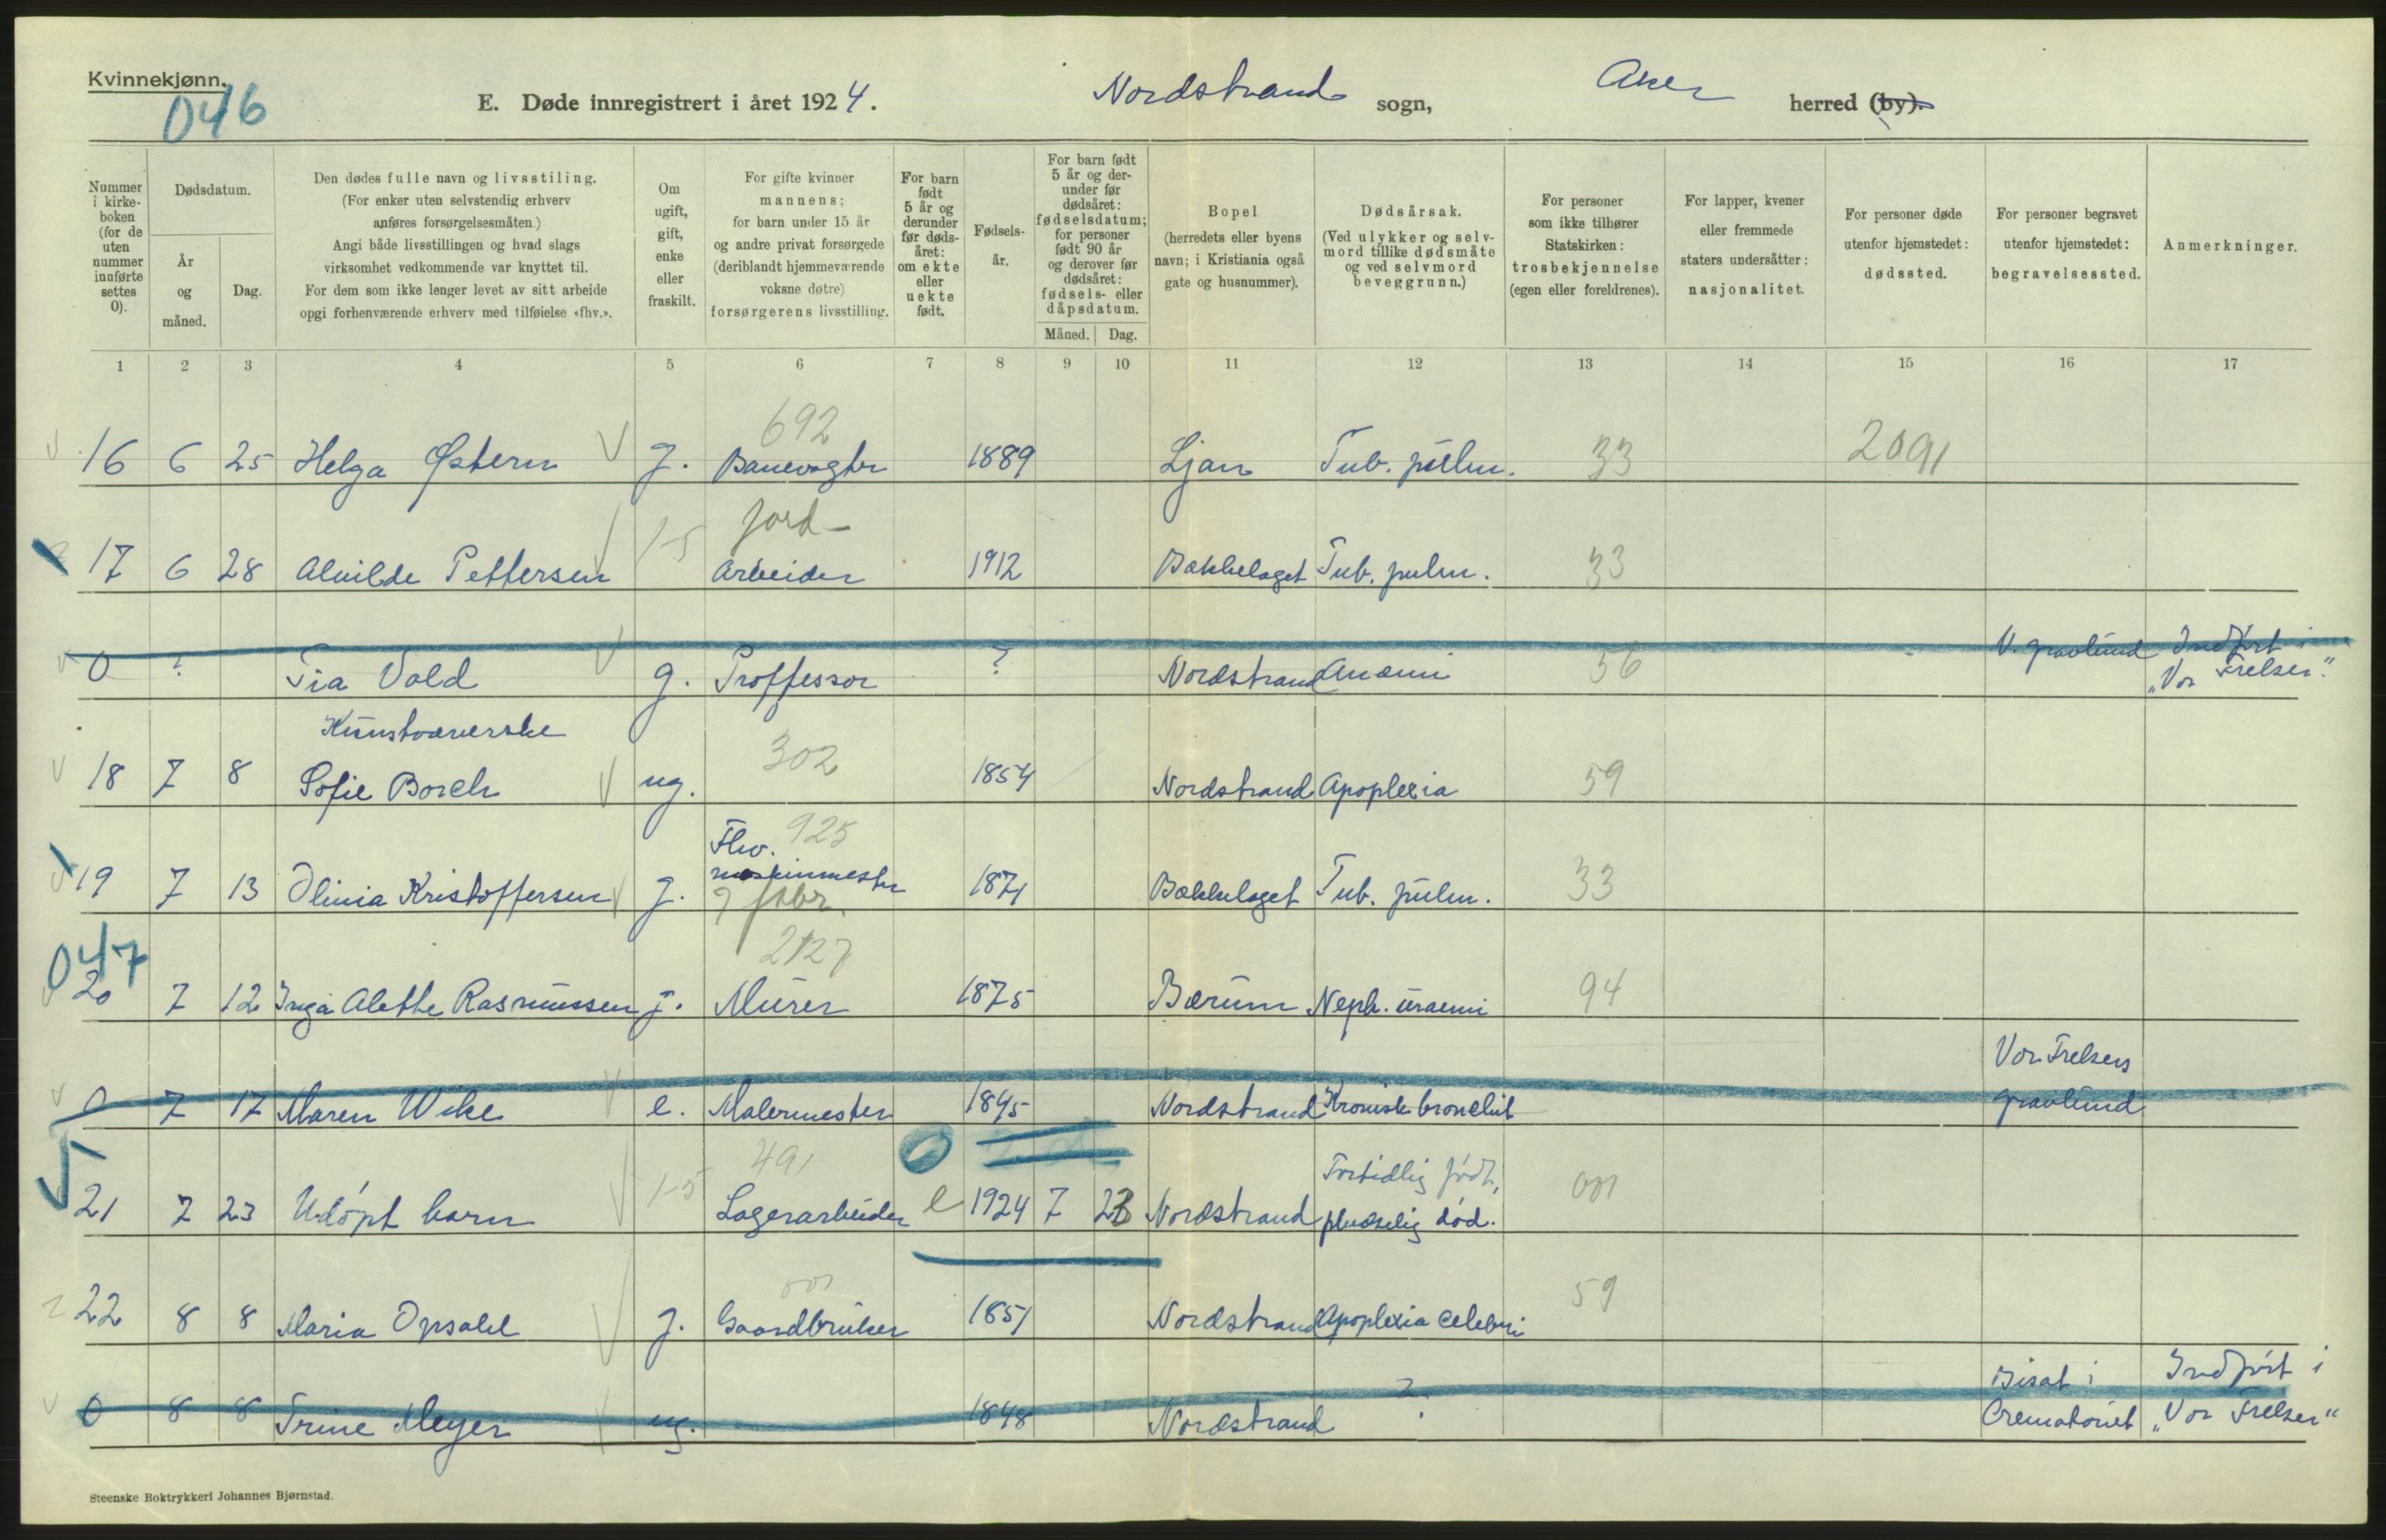 Kvinnekjønn.
046
E. Døde innregistrert i året 1924.
Nordstrand sogn,
Aker herred (by).
Nummer i kirkeboken (for de uten nummer innførte settes 0).
Dødsdatum.
År og måned.
Dag.
Den dødes fulle navn og livsstiling.
(For enker uten selvstendig erhverv
anføres forsørgelsesmåten.)
Angi både livsstillingen og hvad slags
virksomhet vedkommende var knyttet til.
For dem som ikke lenger levet av sitt arbeide
opgi forhenværende erhverv med tilføielse «fhv.».
Om
ugift,
gift,
enke
eller
fraskilt.
For gifte kvinner
mannens;
for barn under 15 år
og andre privat forsørgede
(deriblandt hjemmeværende
voksne døtre)
forsørgerens livsstilling.
For barn
født
5 år og
derunder
før døds-
året:
om ekte
eller
uekte
født.
Fødsels-
år.
For barn født
5 år og der-
under før
dødsåret:
fødselsdatum;
for personer
født 90 år
og derover før
dødsåret:
fødsels- eller
dåpsdatum.
Måned. Dag.
Bopel
(herredets eller byens
navn; i Kristiania også
gate og husnummer).
Dødsårsak.
(Ved ulykker og selv-
mord tillike dødsmåte
og ved selvmord
beveggrunn.)
For personer
som ikke tilhører
Statskirken:
trosbekjennelse
(egen eller foreldrenes).
For lapper, kvener
eller fremmede
staters undersåtter:
nasjonalitet.
For personer døde
utenfor hjemstedet:
dødssted.
For personer begravet
utenfor hjemstedet:
begravelsessted.
Anmerkninger.
1 2 3 4 5 6 7 8 9 10 11 12 13 14 15 16 17
692
16 6 25 Helga Østern g. Banevogter 1889 Ljan Tub. pulm. 33 2091
jord-
17 6 28 Alvilde Pettersen 1-5 Arbeider 1912 Bækkelaget Tub. pulm. 33
0 ? Tia Vold g. Proffessor ? Nordstrand Anæmi 56 V. gravlund Indført i
"Vor Frelser".
Kunstvæverske
302
18 7 8 Sofie Borch ug. 1854 Nordstrand Apoplexia 59
Fhv. 925
maskinmester
19 7 13 Olivia Kristoffersen g. 1871 Bækkelaget Tub. pulm. 33
? fabr.
047
2127
20 7 12 Inga Alethe Rasmussen g. Murer 1875 Bærum Neph. uraemi 94
Vor Frelsers
0 7 17 Maren Wike e. Malermester 1845 Nordstrand Kronisk bronchit gravlund
491
Fortidlig født,
21 7 23 Udøpt barn 1-5 Lagerarbeider e 1924 7 23 Nordstrand pludselig død.
001
22 8 8 Maria Opsahl g. Gaardbruker 1851 Nordstrand Apoplexia celebri 59
Bisat i Indført i
0 8 8 Trine Meyer ug. 1848 Nordstrand ? Crematoriet "Vor Frelser"
Steenske Boktrykkeri Johannes Bjørnstad.